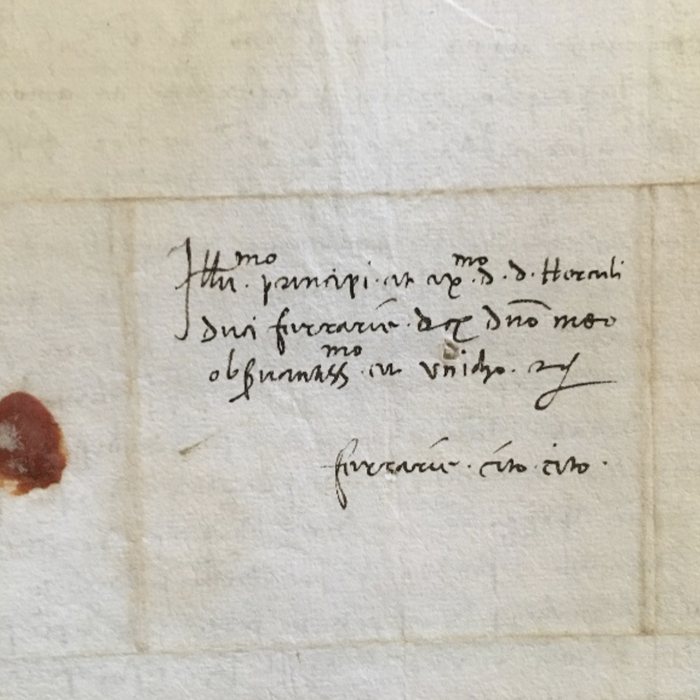 Illu^mo. principi et ex^mo. d. d. Herculi
duci ferrarie etc dno meo
obseruantiss^mo. et vnicho. etc
ferrarie. cito cito.